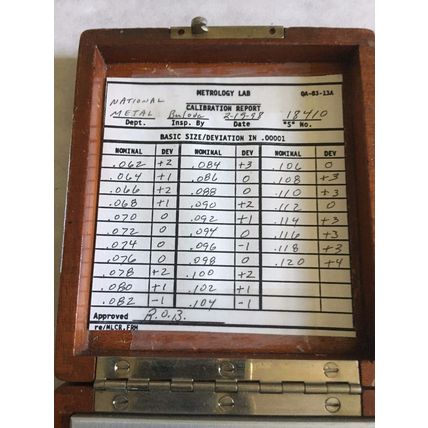 METROLOGY LAB QA-83-13A
CALIBRATION REPORT
NATIONAL
METAL Bulova 2-19-98 18410
Dept. Insp. By Date "S" No.
BASIC SIZE/DEVIATION IN .00001
NOMINAL DEV NOMINAL DEV NOMINAL DEV
.062 +2 .084 +3 .106 0
.064 +1 .086 0 .108 +3
.066 +2 .088 0 .110 +3
.068 +1 .090 +2 .112 0
.070 0 .092 +1 .114 +3
.072 0 .094 0 .116 +3
.074 0 .096 -1 .118 +3
.076 0 .098 0 .120 +4
.078 +2 .100 +2
.080 +1 .102 +1
.082 -1 .104 -1
Approved R.O.B.
re/MLCR.FRM